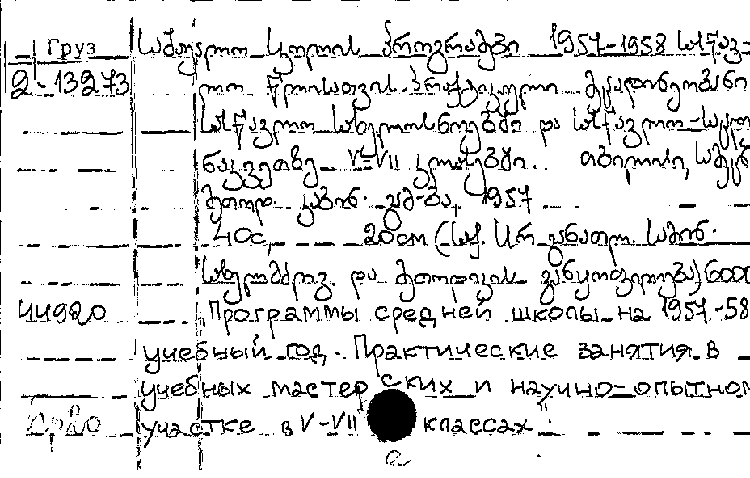 Груз საშუალო სკოლის პროგრამები 1957-1958 სასწავ-
2-13273 ლო წლისათვის. პრაქტიკული მეცადინეობანი
სასწავლო სახელოსნოებში და სასწავლო-საცდ
ნაკვეთზე V-VII კლასებში. თბილისი,
მეთოდ. კაბინ. გამ-ბა, 1957
40с, 20см (საქ. სსრ განათლ. სამინ.
სახელმძღვ. და მეთოდიკის განყოფილება) 6000
44920 Программы средней школы на 1957-58
учебный год. Практические занятия в
учебных мастерских и научно-опытном
участке в V-VII классах